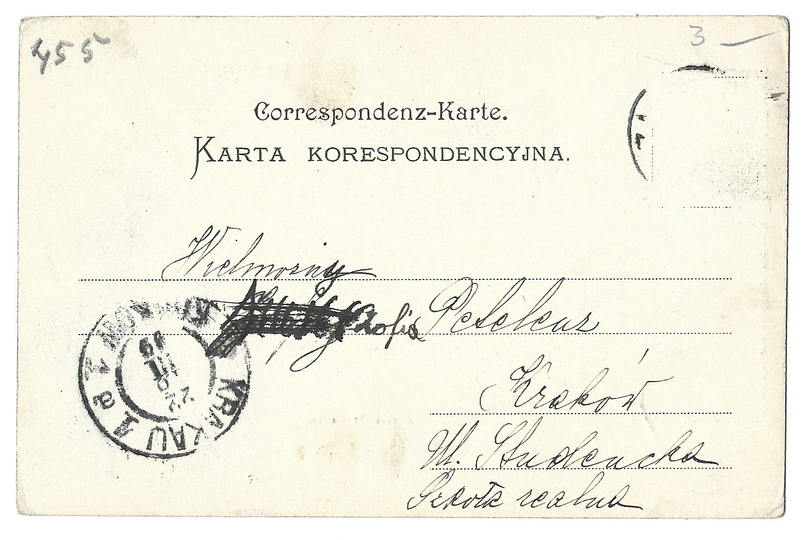 455
3 –
Correspondenz-Karte.
KARTA KORESPONDENCYJNA.
Wielmożny
Zofia Petelenz
Kraków
Ul. Studencka
Szkoła realna
KRAKAU 1 a
KRAKÓW 1
22